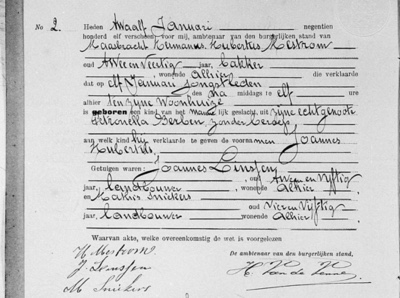 No 2. Heden twaalf Januari negentien
honderd elf verscheen voor mij, ambtenaar van den burgerlijken stand van
Maasbracht Hermanus Hubertus Mestrom
oud twee en veertig jaar, bakker
wonende alhier die verklaarde
dat op elf Januari jongstleden
des na middags te elf ure
alhier ten zijne woonhuize
is geboren een kind van het mannelijk geslacht, uit zijne echtgenoote
Petronella Berben zonder beroep
aan welk kind hij verklaarde te geven de voornamen Joannes
Hubertus
Getuigen waren: Joannes Linssen
oud twee en vijftig
jaar, landbouwer wonende alhier
en Mathis Snickers oud vier en vijftig
jaar, landbouwer wonende alhier
Waarvan akte, welke overeenkomstig de wet is voorgelezen
H Mestrom De ambtenaar van den burgerlijken stand,
J. Linssen
M Snickers H. Van de Venne